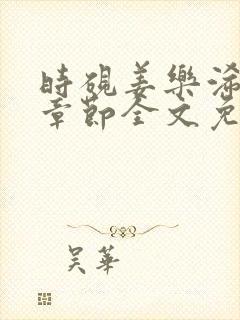 時硯姜樂浠
章節全文免
吴華